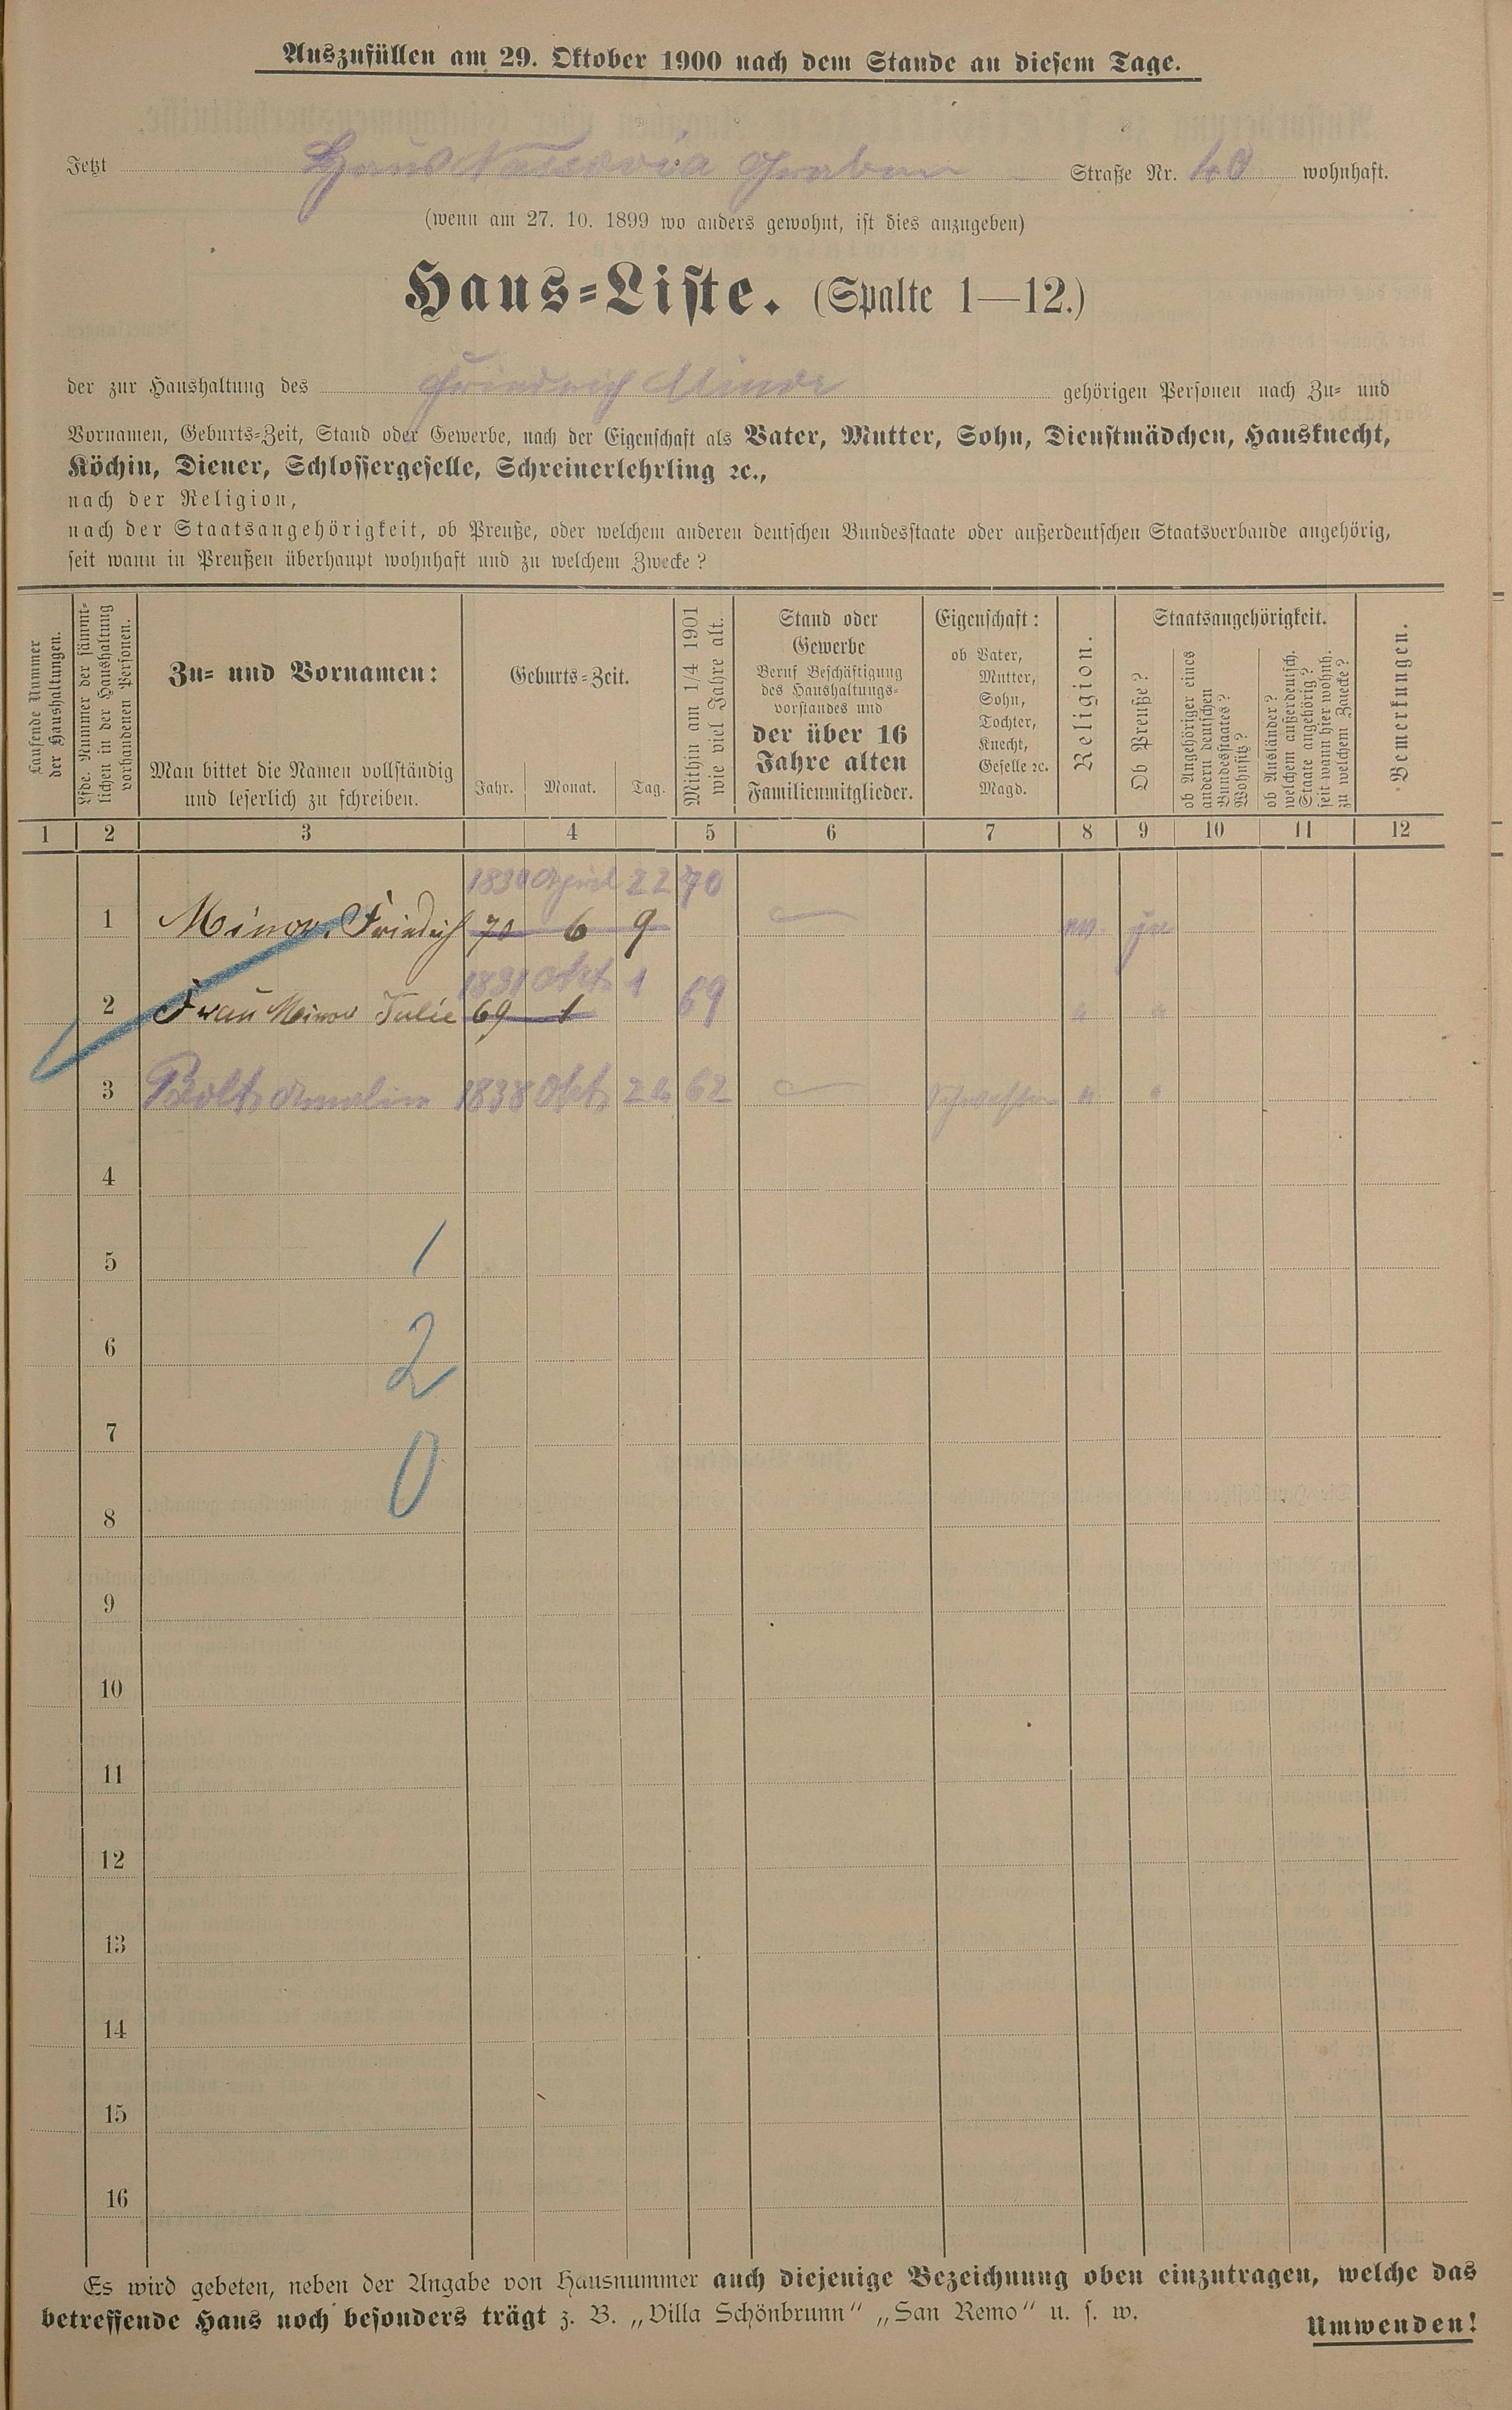 Auszufüllen am 29. Oktober 1900 nach dem Stande an diesem Tage.
Jetzt Haus Nassovia Graben Straße Nr. 40 wohnhaft.
(wenn am 27. 10. 1899 wo anders gewohnt, ist dies anzugeben)
Haus-Liste. (Spalte 1—12.)
der zur Haushaltung des Friedrich Minor gehörigen Personen nach Zu- und
Vornamen, Geburts-Zeit, Stand oder Gewerbe, nach der Eigenschaft als Vater, Mutter, Sohn, Dienstmädchen, Hausknecht,
Köchin, Diener, Schlossergeselle, Schreinerlehrling ꝛc.,
nach der Religion,
nach der Staatsangehörigkeit, ob Preuße, oder welchem anderen deutschen Bundesstaate oder außerdeutschen Staatsverbande angehörig,
seit wann in Preußen überhaupt wohnhaft und zu welchem Zwecke?
Laufende Nummer
der Haushaltungen.
Lfde. Nummer der sämmt-
lichen in der Haushaltung
vorhandenen Personen.
Zu- und Vornamen:
Man bittet die Namen vollständig
und leserlich zu schreiben.
Geburts-Zeit.
Jahr. Monat. Tag.
Mithin am 1/4 1901
wie viel Jahre alt.
Stand oder
Gewerbe
Beruf Beschäftigung
des Haushaltungs-
vorstandes und
der über 16
Jahre alten
Familienmitglieder.
Eigenschaft:
ob Vater,
Mutter,
Sohn,
Tochter,
Knecht,
Geselle ꝛc.
Magd.
Religion.
Staatsangehörigkeit.
Ob Preuße?
ob Angehöriger eines
andern deutschen
Bundesstaates?
Wohnsitz?
ob Ausländer?
welchem außerdeutsch.
Staate angehörig?
seit wann hier wohnh.
zu welchem Zwecke?
Bemerkungen.
1 2 3 4 5 6 7 8 9 10 11 12
1830 April 22 70
1 Minor, Friedrich 70 6 9 ev. ja
1831 Okt. 1
2 Frau Minor Julie 69 1 69 " "
3 Amalie 1838 Okt. 62 " "
4
5 1
6 2
7
0
8
9
10
11
12
13
14
15
16
Es wird gebeten, neben der Angabe von Hausnummer auch diejenige Bezeichnung oben einzutragen, welche das
betreffende Haus noch besonders trägt z. B. „Villa Schönbrunn“ „San Remo“ u. s. w.
Umwenden!